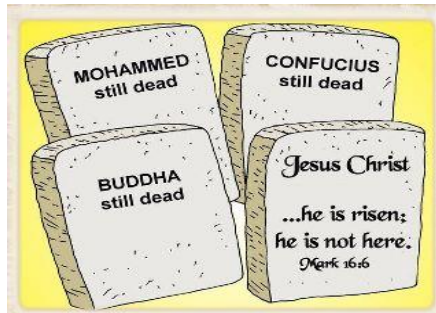 MOHAMMED
still dead
CONFUCIUS
still dead
BUDDHA
still dead
Jesus Christ
...he is risen;
he is not here.
Mark 16:6